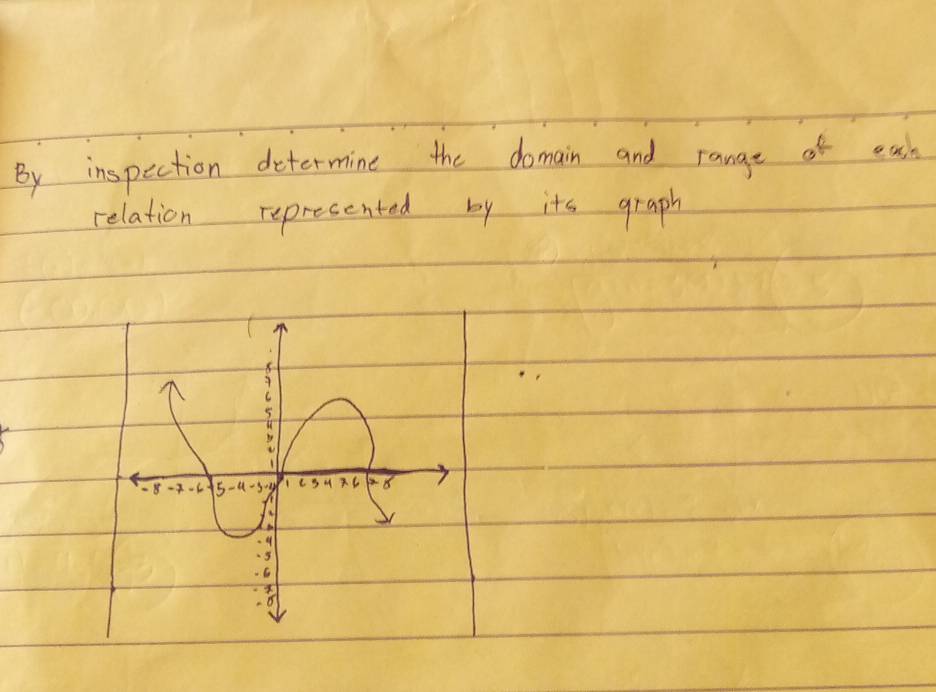 By inspection determine the domain and range of each
relation represented by its graph
8
7
6
5
4
3
2
1
-8 -7 -6 -5 -4 -3 -2 1 2 3 4 7 6 7 8
-4
-5
-6
-7
-8